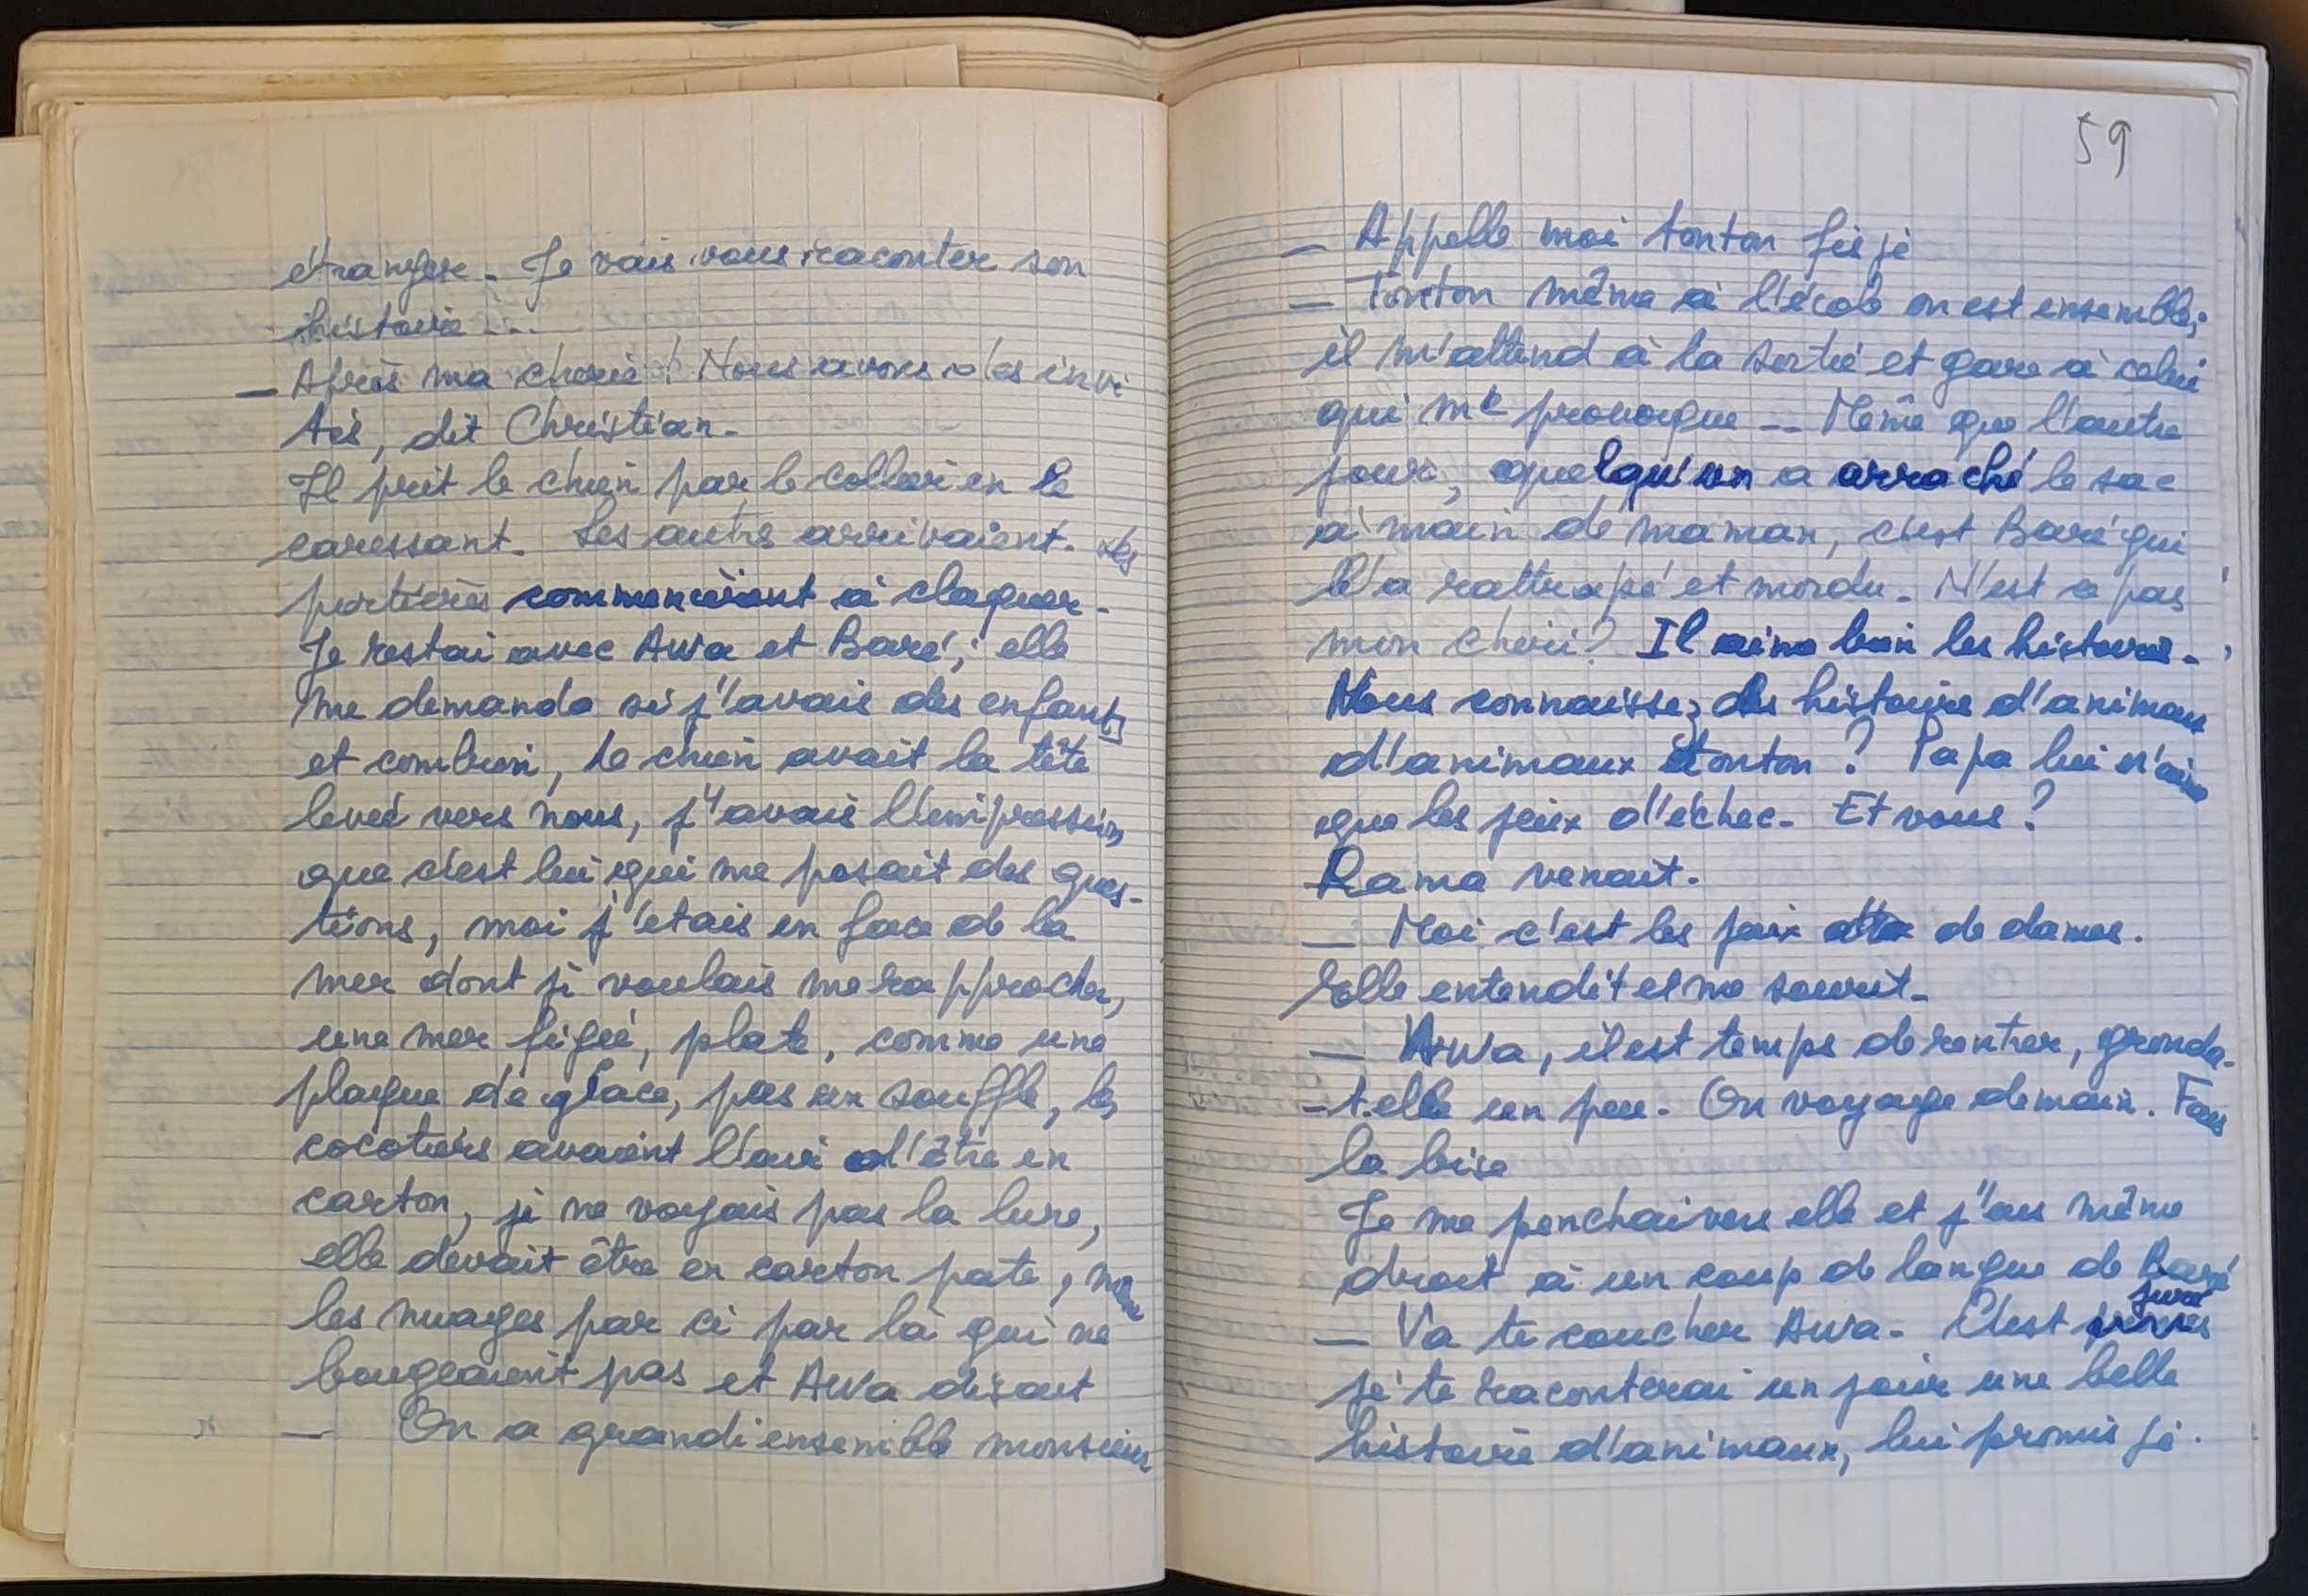 étrangère. Je vais vous raconter son
histoire...
— Après ma chérie! Nous avons des invi
tés, dit Christian.
Il prit le chien par le collier en le
caressant. Les autres arrivaient. Les
portières commençaient à claquer.
Je restai avec Awa et Baré; elle
me demanda si j'avais des enfants
et combien, le chien avait la tête
levée vers nous, j'avais l'impression
que c'est lui qui me posait des ques-
tions, moi j'étais en face de la
mer dont je voulais me rapprocher,
une mer figée, plate, comme une
plaque de glace, pas un souffle, les
cocotiers avaient l'air d'être en
carton, je ne voyais pas la lune,
elle devait être en carton pate,
les nuages par ci par là qui ne
bougeaient pas et Awa disant
— On a grandi ensemble monsieur
59
— Appelle moi tonton fis je
— Tonton même à l'école on est ensemble;
il m'attend à la sortie et gare à celui
qui me provoque — Même que l'autre
jour, quelqu'un a arraché le sac
à main de maman, c'est Baré qui
l'a rattrapé et mordu. N'est ce pas
mon chéri? Il aime bien les histoires.
Vous connaissez des histoires d'animaux
d'animaux tonton? Papa lui n'aime
que les jeux d'échec. Et vous?
Rama venait.
— Moi c'est les jeux de dames.
Elle entendit et me sourit.
— Awa, il est temps de rentrer, gronda-
-t-elle un peu. On voyage demain. Fais
la bise
Je me penchai vers elle et j'eus même
droit à un coup de langue de Baré
juré
— Va te coucher Awa. C'est
je te raconterai un jour une belle
histoire d'animaux, lui promis je.